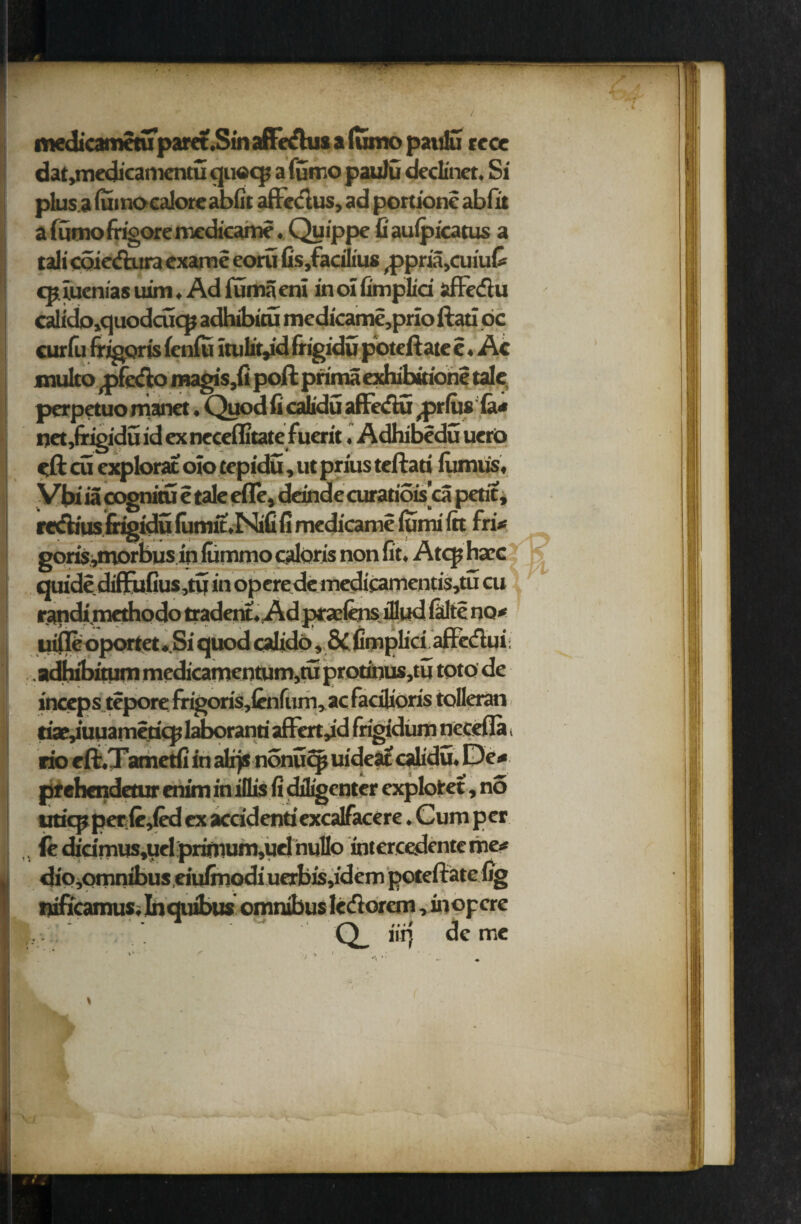 medicamētū paret. Sin affectus a sūmo paulū rece
dat, medicamentū quoqꝫ a sūmo paulū declinet. Si
plus a sūmo calore absit affectus, ad portionē absit
a sūmo frigore medicamē. Quippe si auspicatus a
tali cōiectura examē eorū sis, facilius ꝓpriā, cuiusꝭ
qꝫ īuenias uim. Ad sumā enī in oī simplici affectu
calido, quodcūqꝫ adhibitū medicamē, prīo stati oc
cursu frigoris sensū ītulit, id frigidū potestate ē. Ac
multo ꝓfecto magis, si post primā exhibitionē tale
perpetuo manet. Quod si calidū affectū ꝓrsus sa-
net, frigidū id ex necessitate fuerit. Adhibēdū uero
est cū explorat oīo tepidū, ut prius testati sumus.
Vbi iā cognitū ē tale esse, deinde curatiōis cā petit,
rectius frigidū sumit. Nisi si medicamē sūmi sit fri-
goris, morbus in sūmmo caloris non sit. Atqꝫ hæc
quidē diffusius, tū in opere de medicamentis, tū cu
randi methodo tradent. Ad præsens illud saltē no-
uisse oportet. Si quod calido, & simplici affectui
adhibitum medicamentum, tū protinus, tū toto de
inceps tēpore frigoris, sensum, ac facilioris tolleran
tiæ, iuuamētiqꝫ laboranti affert, id frigidum necessa
rio est. Tametsi in alijs nōnūqꝫ uideat calidū. De-
prehendetur enim in illis si diligenter exploret, nō
utiqꝫ per se, sed ex accidenti excalfacere. Cum per
se dicimus, uel primum, uel nullo intercedente me-
dio, omnibus eiusmodi uerbis, idem potestate sig
nificamus. In quibus omnibus lectorem, in opere
Q iiij de me